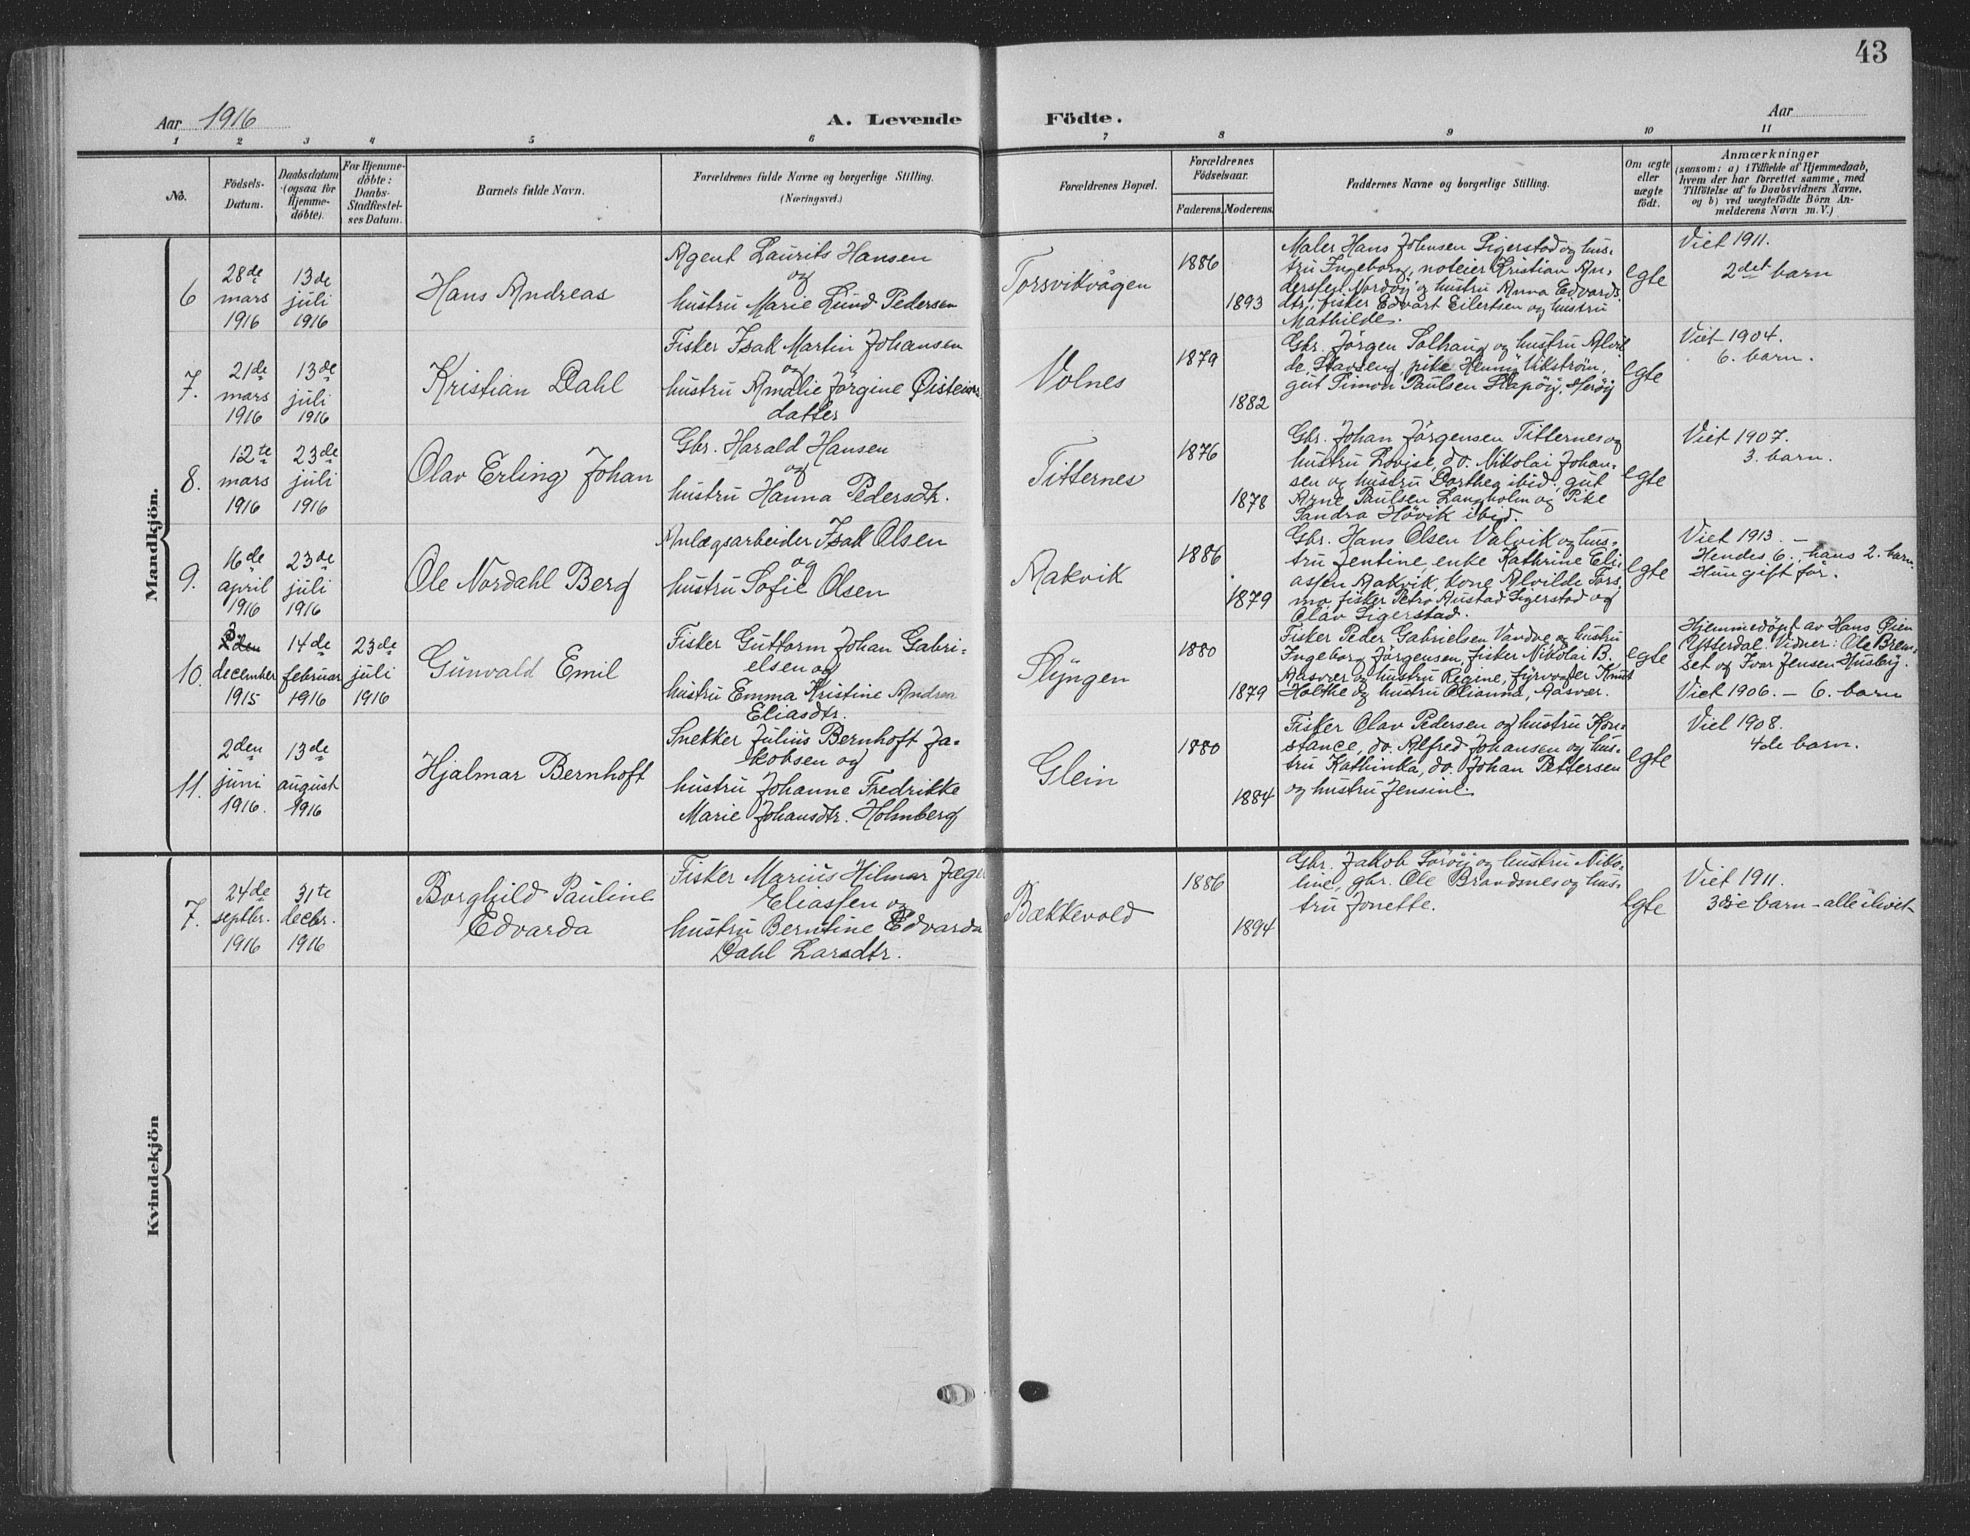 43
Aar 1916
A. Levende
Födte.
Aar
1 2 3 4 5 6 7 8 9 10 11
No.
Födsels-
Datum.
Daabsdatum
(ogsaa for
Hjemme-
döbte).
For Hjemme-
döbte:
Daabs-
Stadfæstel-
ses Datum.
Barnets fulde Navn.
Forældrenes fulde Navne og borgerlige Stilling.
(Næringsvei.)
Forældrenes Bopæl.
Forældrenes
Födselsaar.
Faderens. Moderens.
Faddernes Navne og borgerlige Stilling.
Om ægte
eller
uægte
födt.
Anmærkninger
(saasom: a) i Tilfælde af Hjemmedaab,
hvem der har forrettet samme, med
Tilföielse af to Daabsvidners Navne,
og b) ved uægtefödte Börn An-
melderens Navn m. V.)
Mandkjön.
6
28de
mars
1916
13de
juli
1916
Hans Andreas
Agent Laurits Hansen
og
hustru Marie Lund Pedersen
Torsvikvågen
1886
1893
Maler Hans Johnsen Sigerstad og hus-
tru Ingeborg, noteier Kristian An-
dersen Nordöy og hustru Anna Edvards-
dtr., fisker Edvart Eilertsen og hustru
Mathilde.
egte
Viet 1911.
2det barn
7.
21de
mars
1916
13de
juli
1916
Kristian Dahl
Fisker Isak Martin Johansen
og
hustru Amalie Jörgine Öisteins
datter
Volnes
1879
1882
Gbr. Jörgen Solhaug og hustru Alvil-
de Stavseng, pike Henny Vikström,
gut Simon Paulsen Skapöy, Heröy
egte
Viet 1904.
6. barn.
8.
12te
mars
1916
23de
juli
1916
Olav Erling Johan
Gbr. Harald Hansen
og
hustru Hanna Pedersdtr.
Titternes
1876
1878
Gbr. Johan Jörgensen Titternes og
hustru Lovise, do. Nikolai Johan-
sen og hustru Dorthea ibid, gut
Arne Paulsen Langholm og Pike
Sandra Hövik ibid.
egte
Viet 1907.
3. barn.
9.
16de
april
1916
23de
juli
1916
Ole Nordahl Berg
Anlægsarbeider Isak Olsen
og
hustru Sofie Olsen
Aakvik
1886
1879
Gbr. Hans Olsen Valvik og hus-
tru Jentine, enke Kathrine Eli-
assen Aakvik, kone Alvilde Fors-
mo, fisker Petro Austad Sigerstad og
Olav Sigerstad.
egte
Viet 1913. –
Hendes 6., hans 2. barn.
Hun gift för.
10.
3
december
1915
14de
februar
1916
23de
juli
1916
Gunvald Emil
Fisker Guttorm Johan Gabri-
elsen og
hustru Emma Kristine Andrea
Eliasdtr.
Slyngen
1880
1879
Fisker Peder Gabrielsen Vandve og hustru
Ingeborg Jörgensen, fisker Nikolai B.
Aasvær og hustru Regine, fyrvogter Knut
Holthe og hustru Olianna, Aasvær.
egte
Hjemmedöpt av Hans Öien
Ytterdal. Vidner: Ole Brem-
set og Ivar Jensen Husby.
Viet 1906. – 6. barn
11.
2den
juni
1916.
13de
august
1916
Hjalmar Bernhoft
Snekker Julius Bernhoft Ja-
kobsen og
hustru Johanne Fredrikke
Marie Johansdtr. Holmberg
Glein
1880
1884
Fisker Olav Pedersen og hustru Kon-
stance, do. Alfred Johansen og hus-
tru Kathinka, do. Johan Pettersen
og hustru Jensine.
egte
Viet 1908.
4de barn.
Kvindekjön
7.
24de
septbr.
1916
31te
decbr.
1916
Borghild Pauline
Edvarda
Fisker Marius Hilmar Jæger
Eliassen og
hustru Berntine Edvarda
Dahl Larsdtr.
Bækkevold
1886
1894
Gbr. Jakob Soröy og hustru Niko-
line, gbr. Ole Brandsnes og hus-
tru Jonette.
egte
Viet 1911.
3die barn – alle ilivet –